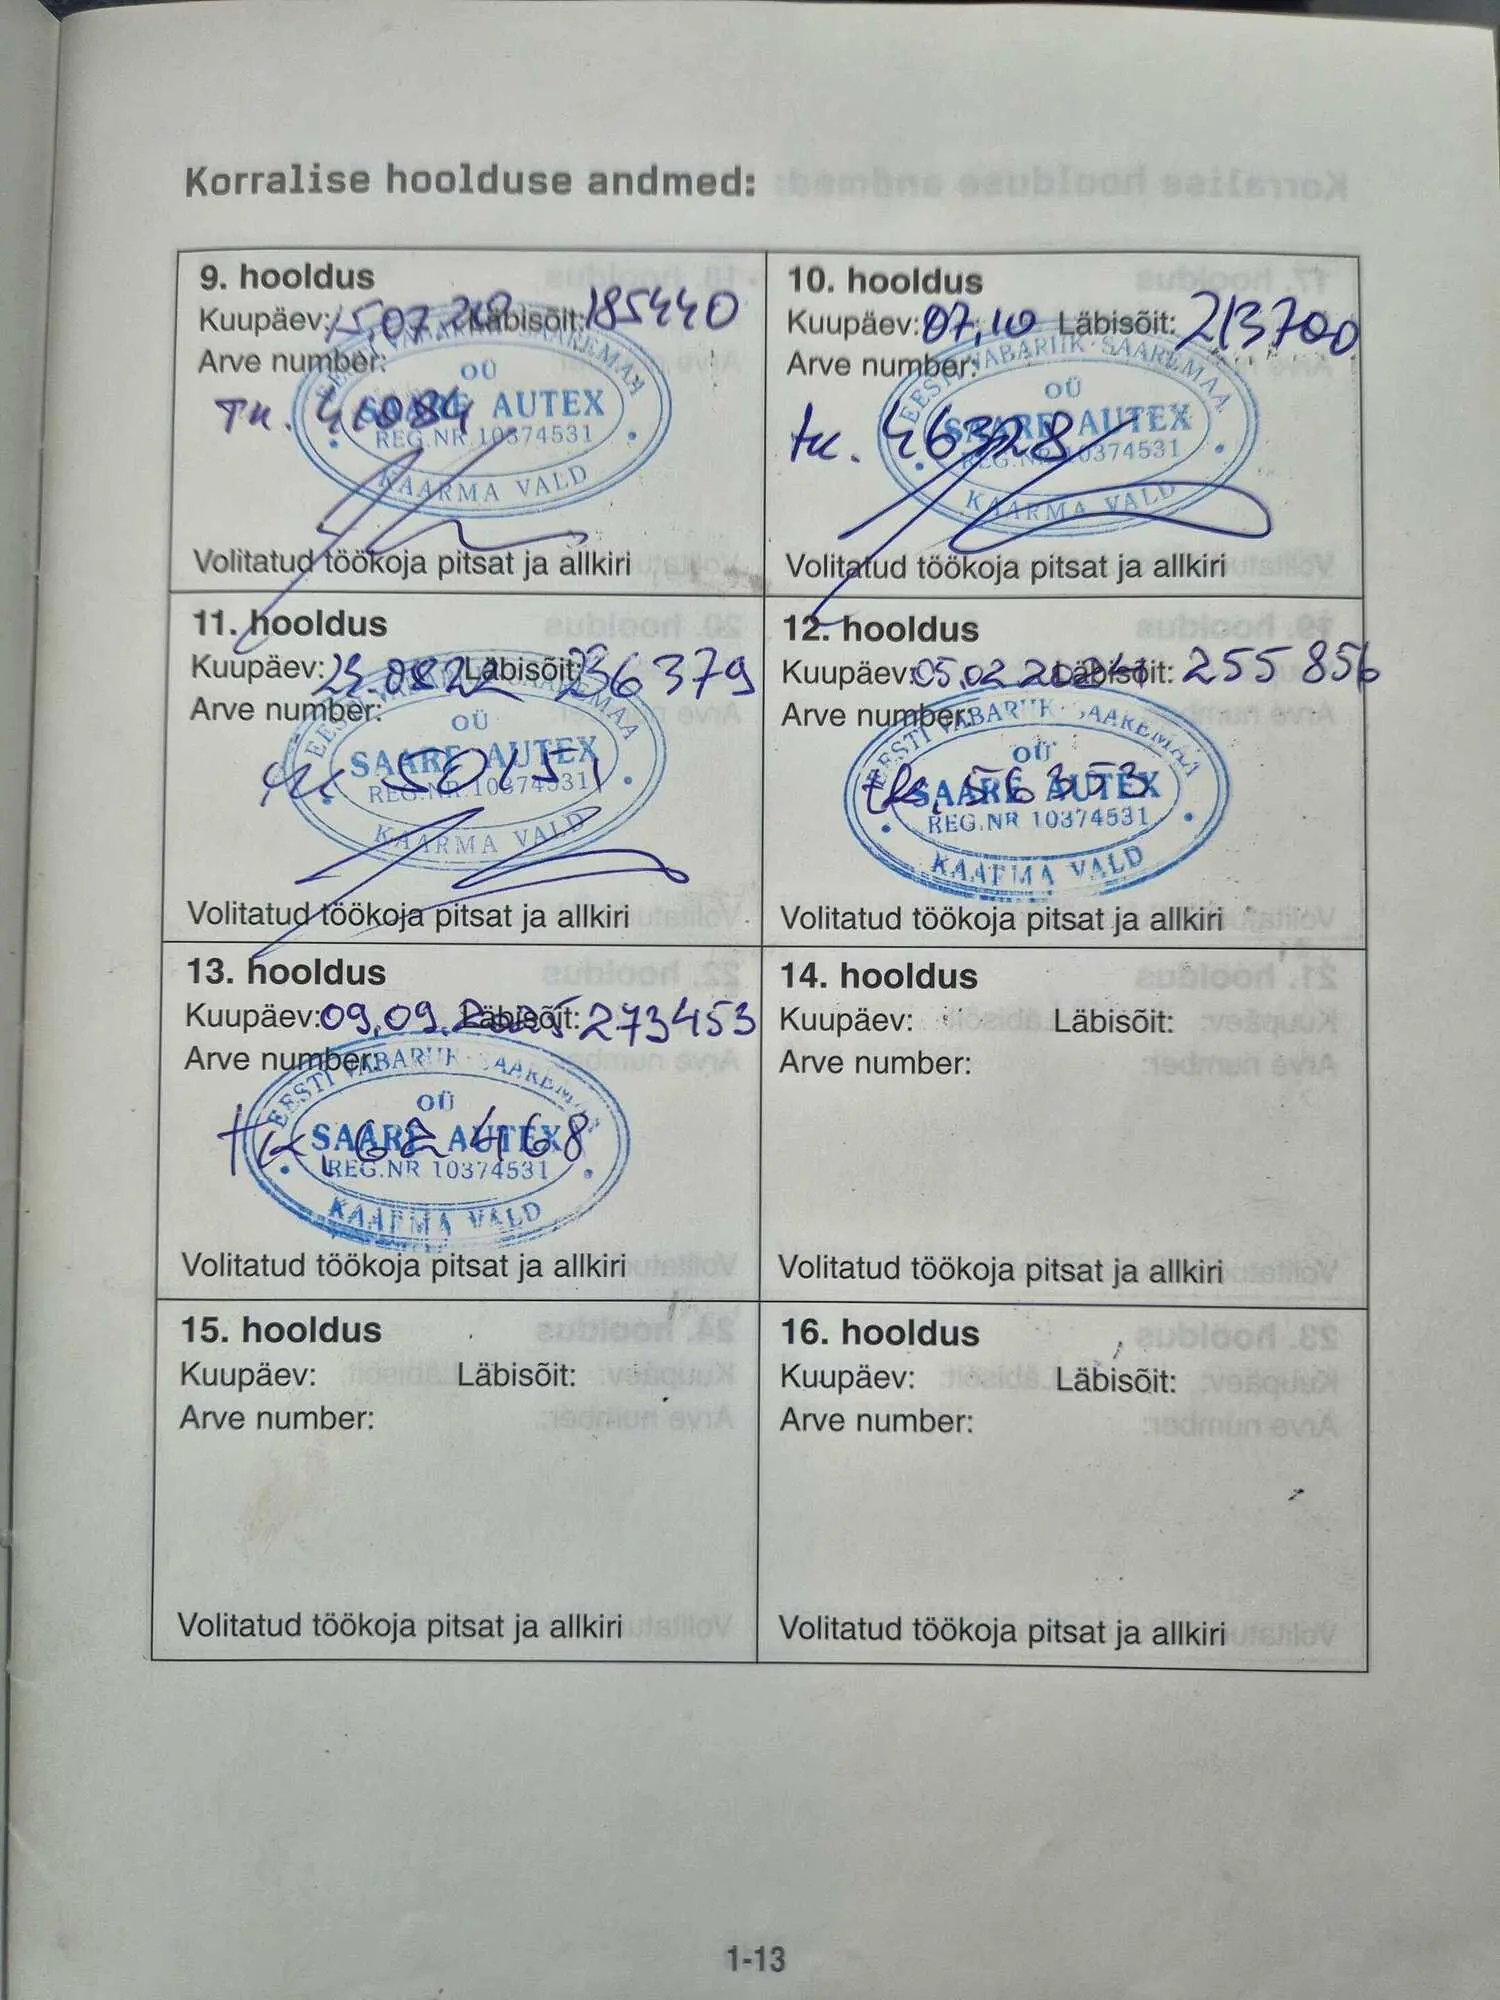 Korralise hoolduse andmed:
9. hooldus
Kuupäev: 15.07. Läbisõit: 185440
Arve number:
EESTI VABARIIK · SAAREMAA
OÜ
тк. 41084
SAARE AUTEX
REG.NR 10374531
KAARMA VALD
Volitatud töökoja pitsat ja allkiri
10. hooldus
Kuupäev: 07.10 Läbisõit: 213700
Arve number:
EESTI VABARIIK · SAAREMAA
OÜ
tk. 46328
SAARE AUTEX
REG.NR 10374531
KAARMA VALD
Volitatud töökoja pitsat ja allkiri
11. hooldus
Kuupäev: Läbisõit: 236379
Arve number:
EESTI VABARIIK · SAAREMAA
OÜ
SAARE AUTEX
REG.NR 10374531
KAARMA VALD
Volitatud töökoja pitsat ja allkiri
12. hooldus
Kuupäev: 05.02.2024 Läbisõit: 255856
Arve number:
EESTI VABARIIK · SAAREMAA
OÜ
tk. 56353
SAARE AUTEX
REG.NR 10374531
KAARMA VALD
Volitatud töökoja pitsat ja allkiri
13. hooldus
Kuupäev: 09.09.2025 Läbisõit: 273453
Arve number:
EESTI VABARIIK · SAAREMAA
OÜ
tk 62468
SAARE AUTEX
REG.NR 10374531
KAARMA VALD
Volitatud töökoja pitsat ja allkiri
14. hooldus
Kuupäev: Läbisõit:
Arve number:
Volitatud töökoja pitsat ja allkiri
15. hooldus
Kuupäev: Läbisõit:
Arve number:
Volitatud töökoja pitsat ja allkiri
16. hooldus
Kuupäev: Läbisõit:
Arve number:
Volitatud töökoja pitsat ja allkiri
1-13